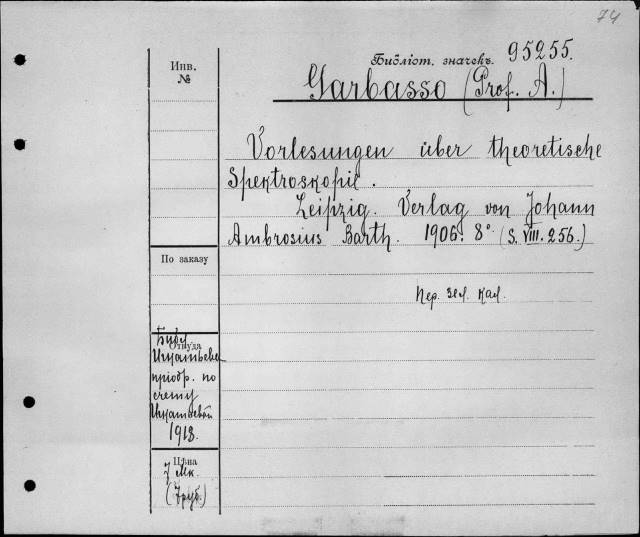 74
Библіот. значекъ. 95255.
Инв.
№
Garbasso (Prof. A.)
Vorlesungen über theoretische
Spektroskopie.
Leipzig. Verlag von Johann
Ambrosius Barth. 1906. 8° (S. VIII. 256.)
По заказу
Пер. зел. кал.
Библ
Откуда
Игнатьева
пріобр. по
счету
Игнатьевой
1918.
Цѣна
7 Мк.
(7 руб.)